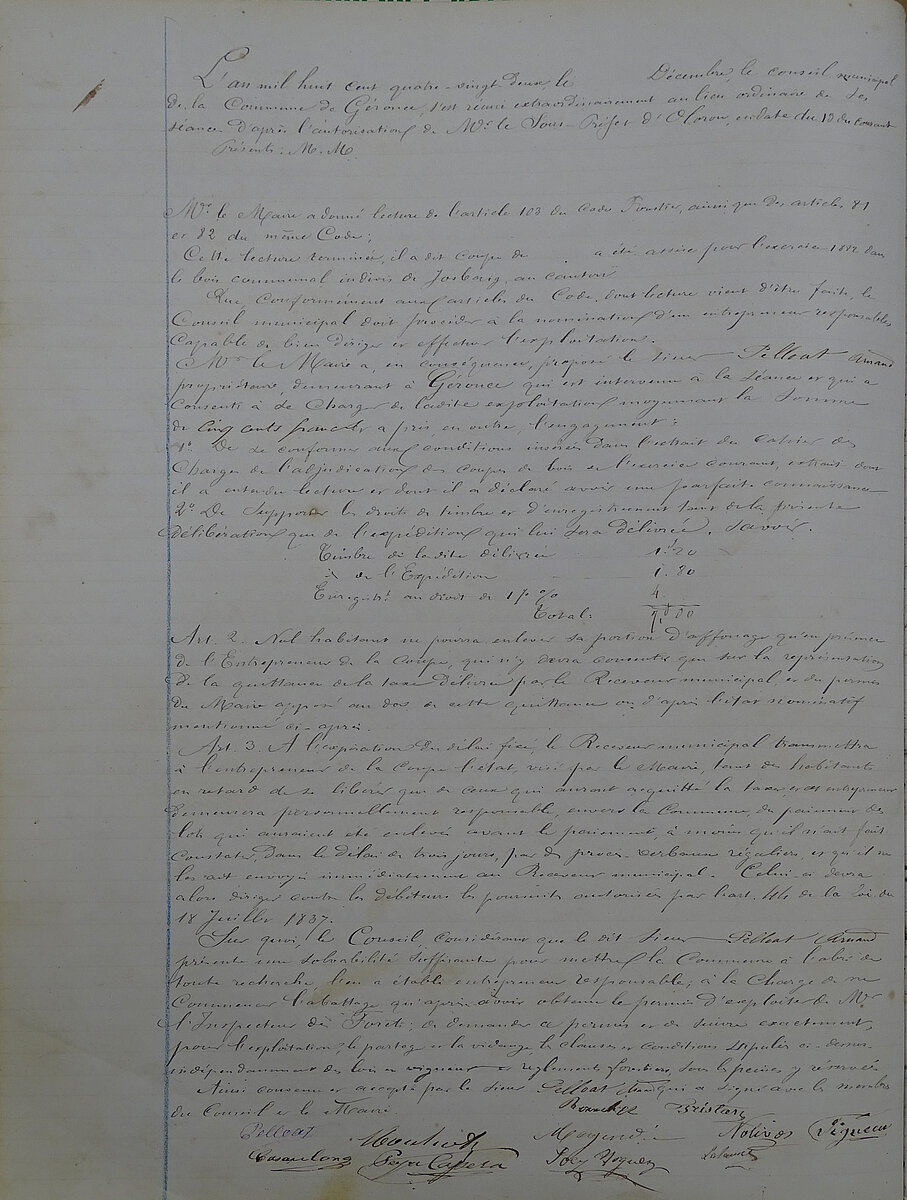 L'an mil huit cent quatre-vingt deux, le Décembre, le conseil municipal
de la Commune de Géronce, s'est réuni extraordinairement au lieu ordinaire de ses
séance d'après l'autorisation de Mr le Sous-Préfet d'Oloron, en date du 12 du courant
Présents: M.M
Mr le Maire a donné lecture de l'article 103 du Code Forestier, ainsi que des articles 81
et 82 du même Code;
Cette lecture terminée, il a dit coupe de a été assise pour l'exercice 1882 dans
le bois communal indivis de Josbaig, au canton
Que, Conformément aux articles du Code, dont lecture vient d'être faite, le
Conseil municipal doit procéder à la nomination d'un entrepreneur responsable,
Capable de bien diriger et effectuer l'exploitation.
Mr le Maire a, en conséquence, proposé le sieur Pelleat Arnaud
propriétaire, demeurant à Géronce qui est intervenu à la séance et qui a
Consenti à se Charger de ladite exploitation moyennant la Somme
de cinq cents francs, a pris en outre, l'engagement:
1o De se conformer aux conditions insérées dans l'extrait du cahier des
Charges de l'adjudication des coupes de bois de l'exercice courant, extrait dont
il a entendu lecture et dont il a déclaré avoir une parfaite connaissance
2o De Supporter les droits de timbre et d'enregistrement tant de la présente
délibération que de l'expédition qui lui sera délivrée, Savoir.
Timbre de ladite délivrée 1.20
de l'Expédition 1.80
Enregistrt au droit de 1/ % 4.
Total: 7.00
Art. 2. Nul habitant ne pourra enlever sa portion d'affouage qu'en présence
de l'Entrepreneur de la Coupe, qui n'y devra consentir que sur la représentation
de la quittance de la taxe délivrée par le Receveur municipal et du permis
du Maire apposé au dos de cette quittance ou d'après l'état nominatif
mentionné ci-après.
Art. 3. A l'expiration du délai fixé, le Receveur municipal transmettra
à l'entrepreneur de la Coupe l'état, visé par le Maire, tant des habitants
en retard de se libérer que de ceux qui auront acquitté la taxe et cet entrepreneur
demeurera personnellement responsable, envers la Commune, du paiement des
lots qui auraient été enlevés avant le paiement, à moins qu'il n'ait fait
Constater, dans le délai de trois jours, par des procès-verbaux réguliers, et qu'il ne
les ait envoyé immédiatement au Receveur municipal. Celui-ci devra
alors diriger contre les débiteurs les poursuites autorisées par l'art. 44 de la loi du
18 Juillet 1837.
Sur quoi, le Conseil, Considérant que le dit Sieur Pelleat Arnaud
présente une solvabilité suffisante pour mettre la Commune à l'abri de
toute recherche l'en a établi entrepreneur responsable; à la Charge de ne
Commencer l'abattage qu'après avoir obtenu le permis d'exploiter de Mr
l'Inspecteur des Forêts; de demander ce permis et de suivre exactement,
pour l'exploitation, le partage et la vidange, les clauses et conditions stipulées ci-dessus,
indépendamment des lois en vigueur et règlements forestiers, sous les peines y réservées
Ainsi convenu et accepté par le sieur Pelleat Arnaud qui a signé avec les membres
du Conseil et le Maire.
Pelleat Nolivos Vigneau
Casaulong